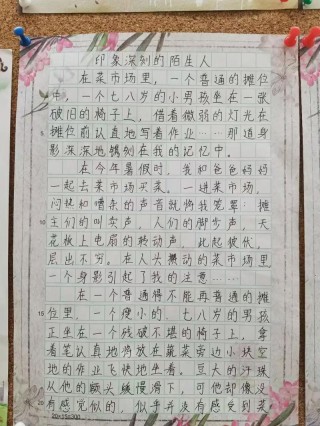 印象深刻的陌生人
在菜市场里，一个普通的摊位
中，一个七八岁的小男孩坐在一张
破旧的椅子上，借着微弱的灯光在
摊位前认真地写着作业……那道身
影深深地镌刻在我的记忆中。
在今年暑假时，我和爸爸妈妈
一起去菜市场买菜。一进菜市场，
闷热和嘈杂的声音就将我笼罩：摊
10 主们的叫卖声，人们的脚步声，天
花板上电扇的转动声，此起彼伏，
层出不穷。在人头攒动的菜市场里
一个身影引起了我的注意……
在一个普通得不能再普通的摊
15 位里，一个瘦小的、七八岁的男孩
正坐在一个残破不堪的椅子上，拿
着笔认真地将放在蔬菜旁边小块空
地的作业飞快地坐着。豆大的汗珠
从他的额头缓慢滑下，可他却像没
20 有感觉似的，似乎并没有感受到菜
20×15=300